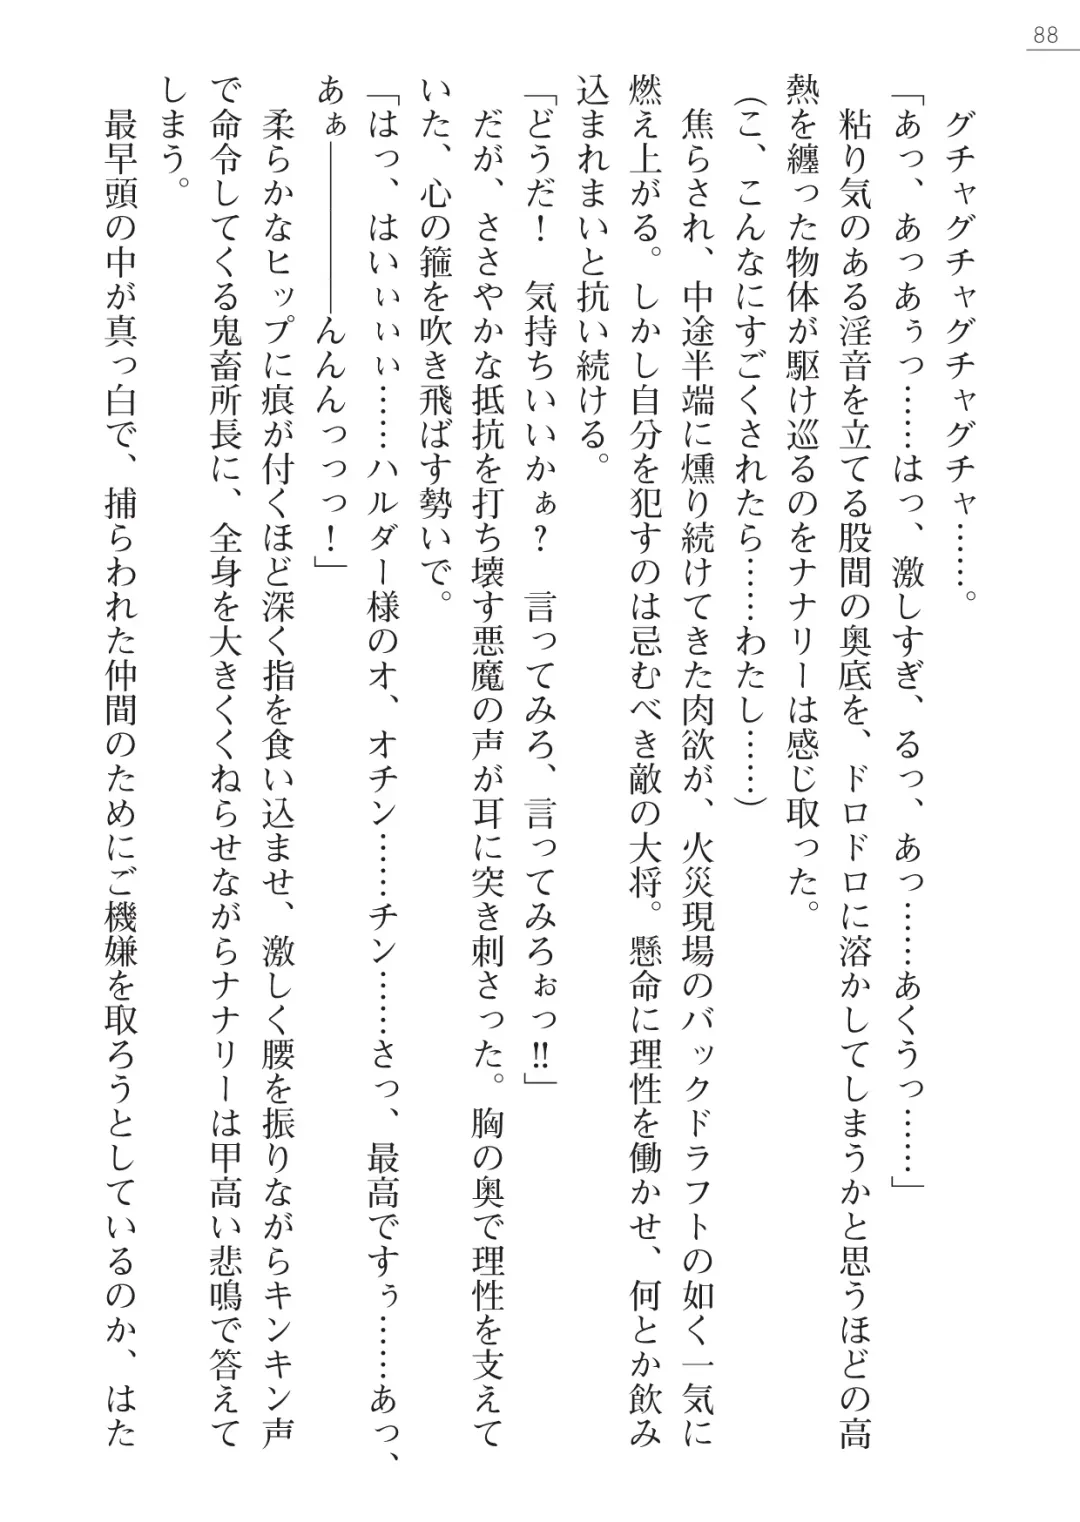 88
グチャグチャグチャグチャ……。
「あっ、あっあぅっ……はっ、激しすぎ、るっ、あっ……あくうっ……」
粘り気のある淫音を立てる股間の奥底を、ドロドロに溶かしてしまうかと思うほどの高
熱を纏った物体が駆け巡るのをナナリーは感じ取った。
(こ、こんなにすごくされたら……わたし……)
焦らされ、中途半端に燻り続けてきた肉欲が、火災現場のバックドラフトの如く一気に
燃え上がる。しかし自分を犯すのは忌むべき敵の大将。懸命に理性を働かせ、何とか飲み
込まれまいと抗い続ける。
「どうだ! 気持ちいいかぁ? 言ってみろ、言ってみろぉっ!!」
だが、ささやかな抵抗を打ち壊す悪魔の声が耳に突き刺さった。胸の奥で理性を支えて
いた、心の箍を吹き飛ばす勢いで。
「はっ、はいぃぃぃ……ハルダー様のオ、オチン……チン……さっ、最高ですぅ……あっ、
あぁ―――――んんんっっっ!」
柔らかなヒップに痕が付くほど深く指を食い込ませ、激しく腰を振りながらキンキン声
で命令してくる鬼畜所長に、全身を大きくくねらせながらナナリーは甲高い悲鳴で答えて
しまう。
最早頭の中が真っ白で、捕らわれた仲間のためにご機嫌を取ろうとしているのか、はた